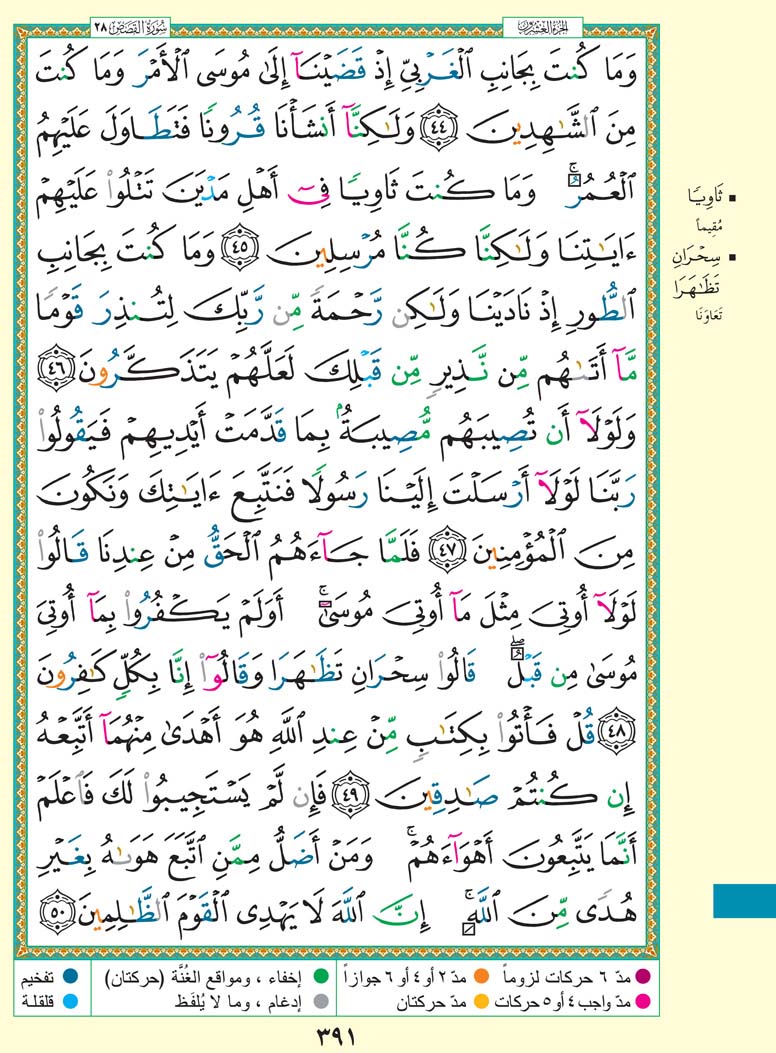 سورة القصص ٢٨
الجزء العشرون
وَمَا كُنتَ بِجَانِبِ ٱلْغَرْبِيِّ إِذْ قَضَيْنَآ إِلَىٰ مُوسَى ٱلْأَمْرَ وَمَا كُنتَ
مِنَ ٱلشَّـٰهِدِينَ ٤٤ وَلَـٰكِنَّآ أَنشَأْنَا قُرُونًا فَتَطَاوَلَ عَلَيْهِمُ
ٱلْعُمُرُ ۚ وَمَا كُنتَ ثَاوِيًا فِىٓ أَهْلِ مَدْيَنَ تَتْلُوا۟ عَلَيْهِمْ
ءَايَـٰتِنَا وَلَـٰكِنَّا كُنَّا مُرْسِلِينَ ٤٥ وَمَا كُنتَ بِجَانِبِ
ٱلطُّورِ إِذْ نَادَيْنَا وَلَـٰكِن رَّحْمَةً مِّن رَّبِّكَ لِتُنذِرَ قَوْمًا
مَّآ أَتَىٰهُم مِّن نَّذِيرٍ مِّن قَبْلِكَ لَعَلَّهُمْ يَتَذَكَّرُونَ ٤٦
وَلَوْلَآ أَن تُصِيبَهُم مُّصِيبَةٌۢ بِمَا قَدَّمَتْ أَيْدِيهِمْ فَيَقُولُوا۟
رَبَّنَا لَوْلَآ أَرْسَلْتَ إِلَيْنَا رَسُولًا فَنَتَّبِعَ ءَايَـٰتِكَ وَنَكُونَ
مِنَ ٱلْمُؤْمِنِينَ ٤٧ فَلَمَّا جَآءَهُمُ ٱلْحَقُّ مِنْ عِندِنَا قَالُوا۟
لَوْلَآ أُوتِىَ مِثْلَ مَآ أُوتِىَ مُوسَىٰٓ ۚ أَوَلَمْ يَكْفُرُوا۟ بِمَآ أُوتِىَ
مُوسَىٰ مِن قَبْلُ ۖ قَالُوا۟ سِحْرَانِ تَظَـٰهَرَا وَقَالُوٓا۟ إِنَّا بِكُلٍّ كَـٰفِرُونَ
٤٨ قُلْ فَأْتُوا۟ بِكِتَـٰبٍ مِّنْ عِندِ ٱللَّهِ هُوَ أَهْدَىٰ مِنْهُمَآ أَتَّبِعْهُ
إِن كُنتُمْ صَـٰدِقِينَ ٤٩ فَإِن لَّمْ يَسْتَجِيبُوا۟ لَكَ فَٱعْلَمْ
أَنَّمَا يَتَّبِعُونَ أَهْوَآءَهُمْ ۚ وَمَنْ أَضَلُّ مِمَّنِ ٱتَّبَعَ هَوَىٰهُ بِغَيْرِ
هُدًى مِّنَ ٱللَّهِ ۚ إِنَّ ٱللَّهَ لَا يَهْدِى ٱلْقَوْمَ ٱلظَّـٰلِمِينَ ٥٠
▪ ثَاوِيًا
مُقِيماً
▪ سِحْرَانِ
تَظَـٰهَرَا
تَعَاوَنَا
مدّ ٦ حركات لزوماً
مدّ ٢ أو ٤ أو ٦ جوازاً
إخفاء ، ومواقع الغُنَّة (حركتان)
تفخيم
مدّ واجب ٤ أو ٥ حركات
مدّ حركتان
إدغام ، وما لا يُلفَظ
قلقلة
٣٩١